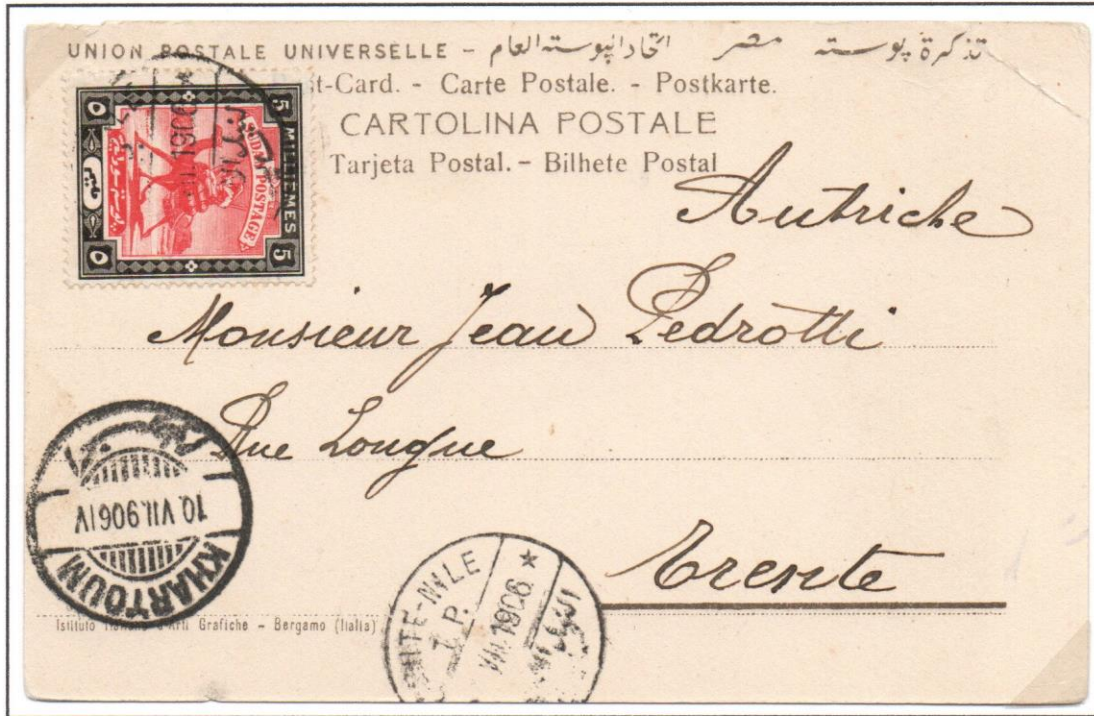 UNION POSTALE UNIVERSELLE - اتحاد البوسته العام تذكرة بوسته مصر
st-Card. - Carte Postale. - Postkarte.
CARTOLINA POSTALE
Tarjeta Postal. - Bilhete Postal
5 MILLIEMES 5
SUDAN POSTAGE
٥ ٥
1906
Autriche
Monsieur Jean Pedrotti
Rue Longue
Trente
10.VII.906 IV
KHARTOUM
WHITE-NILE
T. P.
VII.1906
Istituto Italiano d'Arti Grafiche - Bergamo (Italia)